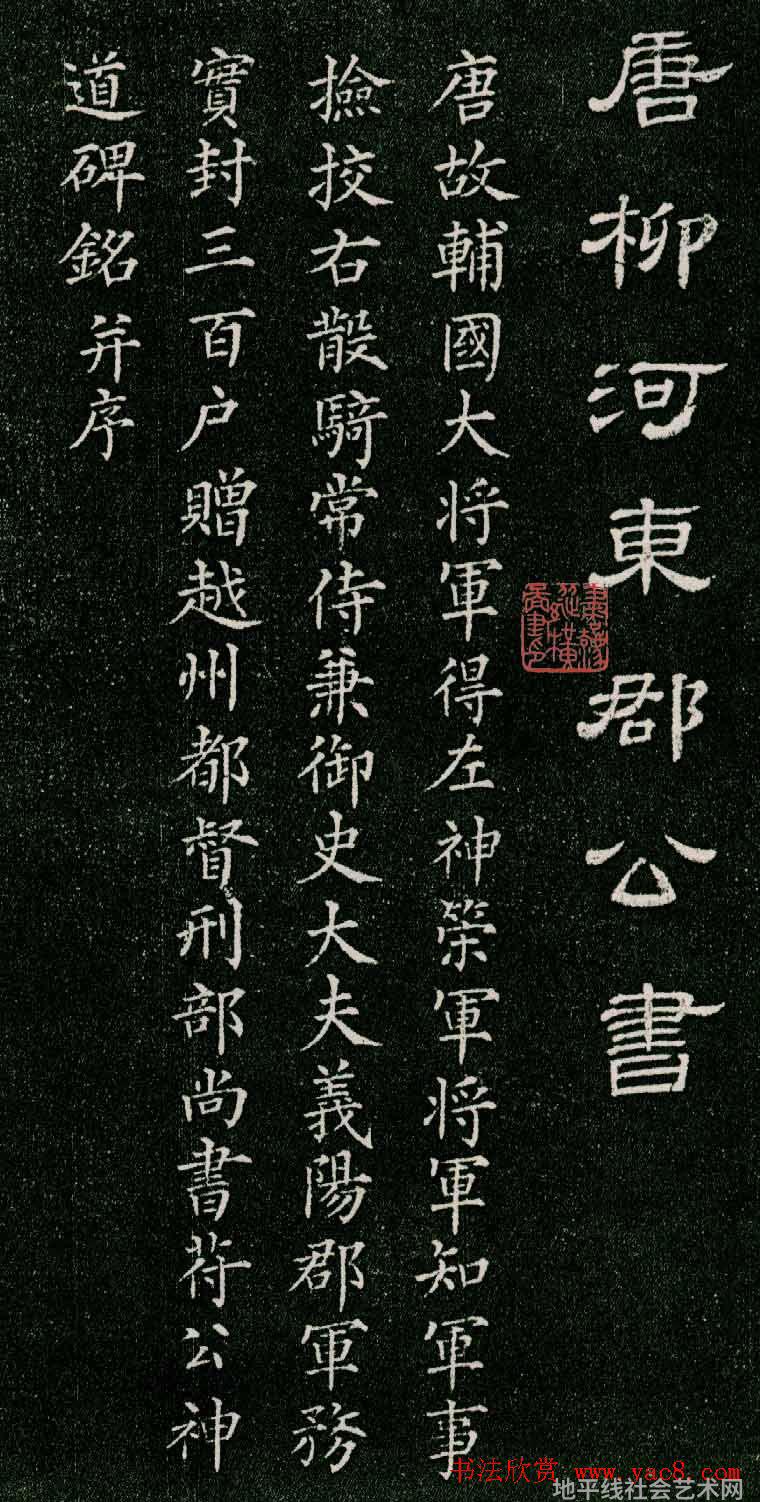 唐柳河東郡公書
唐故輔國大将軍得左神筞軍将軍知軍事
撿挍右散騎常侍兼御史大夫義陽郡軍務
實封三百户贈越州都督刑部尚書苻公神
道碑銘并序
书法欣赏 www.yac8.com
地平线社会艺术网